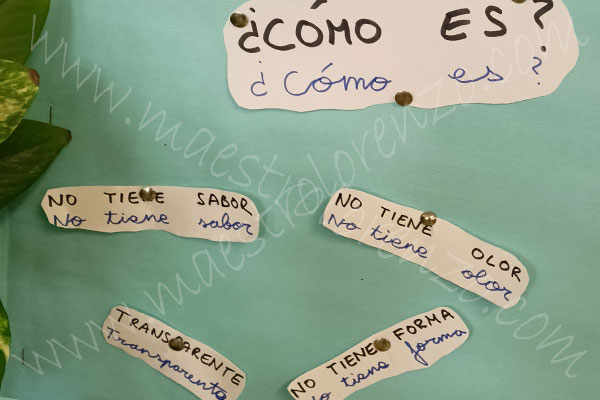 ¿CÓMO ES?
¿Cómo es?
NO TIENE SABOR
No tiene sabor
NO TIENE OLOR
No tiene olor
TRANSPARENTE
Transparente
NO TIENE FORMA
No tiene forma
www.maestrolorenzo.com
www.maestrolorenzo.com